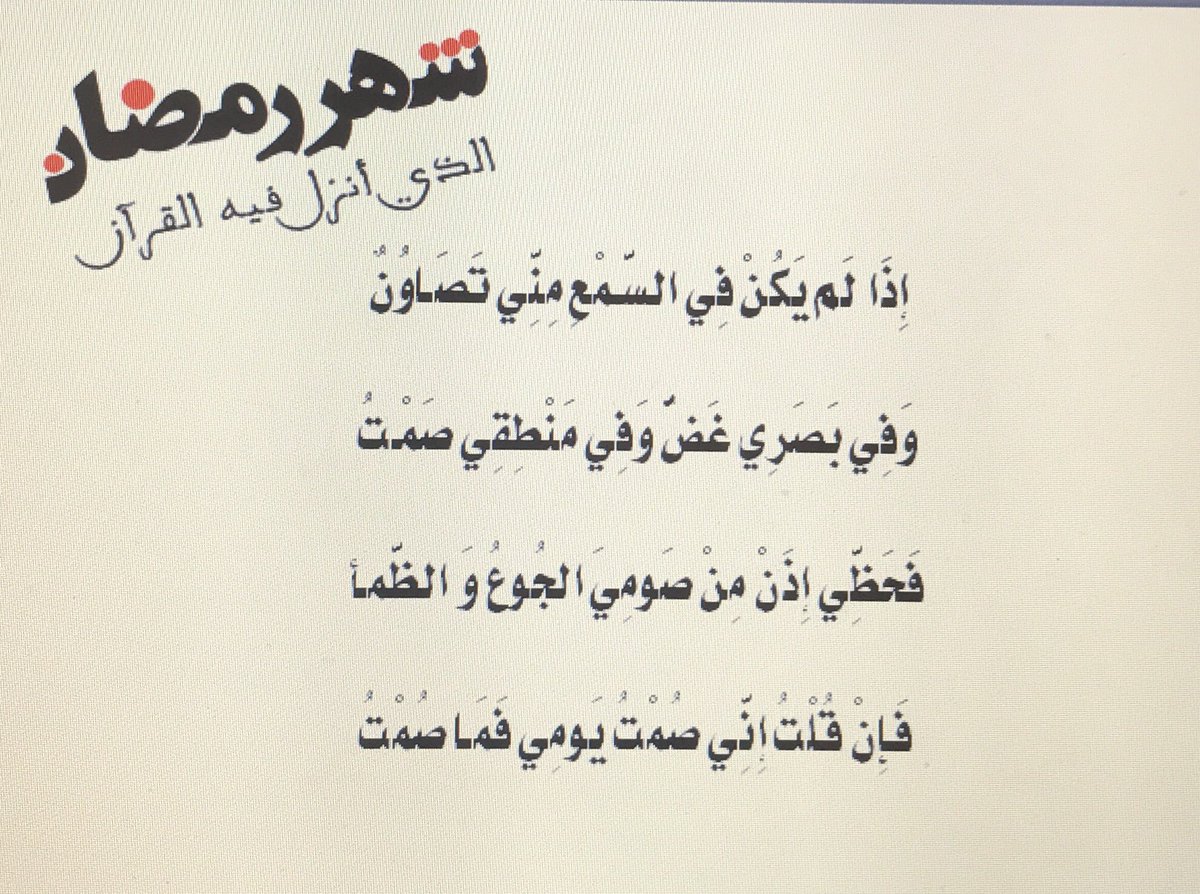 شهر رمضان
الذي أنزل فيه القرآن
إِذَا لَم يَكُنْ فِي السَّمْعِ مِنِّي تَصَاوُنٌ
وَفِي بَصَرِي غَضٌ وَفِي مَنْطِقِي صَمْتُ
فَحَظِّي إِذَنْ مِنْ صَومِيَ الجُوعُ وَ الظَّمأ
فَإِنْ قُلْتُ إِنِّي صُمْتُ يَومِي فَمَا صُمْتُ